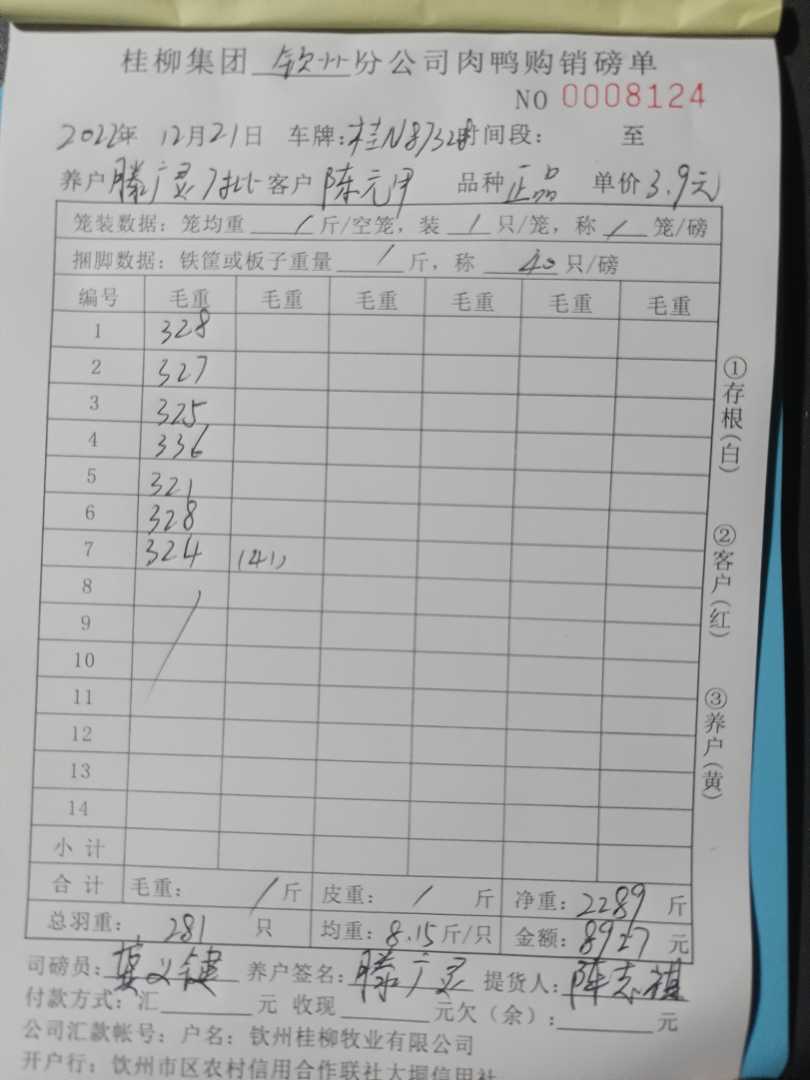 桂柳集团 钦州分公司肉鸭购销磅单
NO 0008124
2022年 12月21日 车牌:桂N87328 时间段: 至
养户 滕广灵 客户 陈元甲 品种 正品 单价 3.9元
笼装数据: 笼均重 / 斤/空笼, 装 / 只/笼, 称 / 笼/磅
捆脚数据: 铁筐或板子重量 / 斤, 称 40 只/磅
编号 毛重 毛重 毛重 毛重 毛重 毛重
1 328
2 327
3 325
4 336
5 321
6 328
7 324 (41)
8
9
10
11
12
13
14
小计
合计 毛重: / 斤 皮重: / 斤 净重: 2289 斤
总羽重: 281 只 均重: 8.15斤/只 金额: 8927 元
司磅员: 莫义健 养户签名: 滕广灵 提货人: 陈志祺
付款方式: 汇 元 收现 元欠(余): 元
公司汇款帐号: 户名: 钦州桂柳牧业有限公司
开户行: 钦州市区农村信用合作联社大垌信用社
①存根(白)
②客户(红)
③养户(黄)